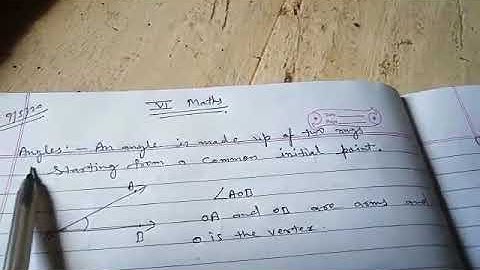 9/5/20
VI Maths
Angles:- An angle is made up of two rays
starting from a common initial point.
A
∠AOB
OA and OB are arms and
B
O is the vertex.